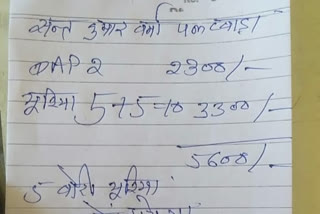 सन्त कुमार वर्मा
DAP 2 2300/-
यूरिया 5+5=10 3300/-
5600/-
5 बोरी यूरिया